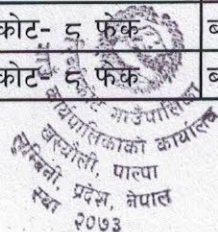 कोट- ८ फेक
कोट- ८ फेक
गाउँपालिका
कार्यपालिकाको कार्यालय
पाल्पा
लुम्बिनी, प्रदेश, नेपाल
२०७३